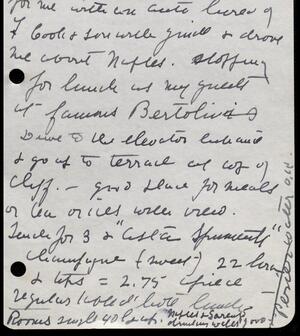 for me with an auto hired of
T Cook & Son with guide & drove
me about Naples. Stopping
for lunch as my guests
at famous Bertolini's
Drive to the elevator entrance
& go up to terrace at top of
cliff. — good place for meals
or tea or ices with view.
Lunch for 3 & "Asti Spumante"
Champagne (sweet) 22 lira
& tips = 2.75 apiece
regular hotel lunch
Rooms single 40 L & up.